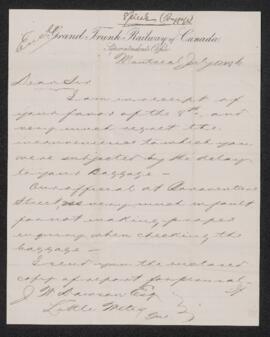 Grand Trunk Railway of Canada
Superintendent's Office
Montreal July
Dear Sir
I am in receipt of
your favor of the 8th, and
very much regret the
inconvenience to which you
were subjected by the delay
to your Baggage –
Our official at Bonaventure
Street is very much in fault
for not making proper
inquiry when checking the
baggage –
I send you the enclosed
copy of report for perusal
J W Dawson Esq
Little Metis
Que